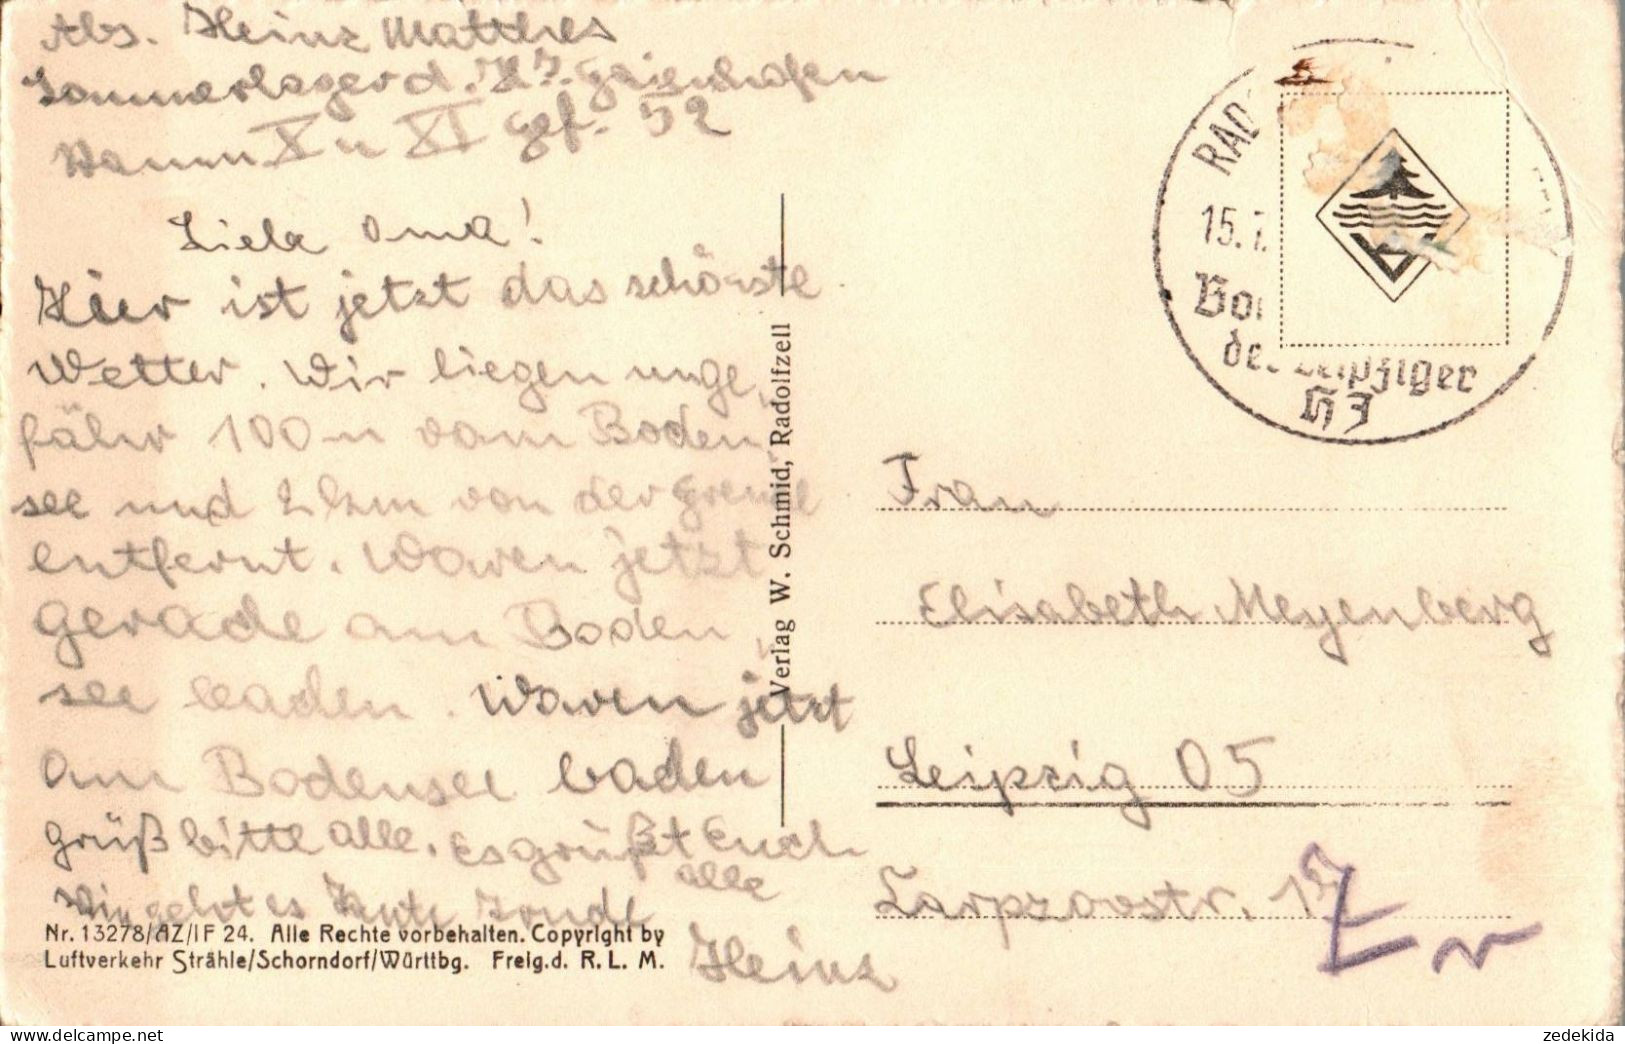 Abs. Heinz Matthes
Sommerlager d. H.J. Gaienhofen
Bann X u XI Gef. 52
Liebe Oma!
Hier ist jetzt das schönste
Wetter. Wir liegen unge,
fähr 100 m vom Boden,
see und 2 km von der Grenze
entfernt. Waren jetzt
gerade am Boden,
see baden. Waren jetzt
am Bodensee baden
Grüß bitte alle. Es grüßt Euch
alle
Heinz
Nr. 13278/AZ/IF 24. Alle Rechte vorbehalten. Copyright by
Luftverkehr Strähle/Schorndorf/Württbg. Freig.d. R. L. M.
Verlag W. Schmid, Radolfzell
RAD
15.7.
Bo
de Leipziger
HJ
Frau
Elisabeth Meyenberg
Leipzig O5
zedekida